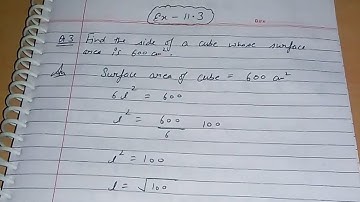 Ex - 11.3
Q.3 Find the side of a cube whose surface
area is 600 cm².
Surface area of cube = 600 cm²
6l² = 600
l² = 600 100
6
l² = 100
l = √100